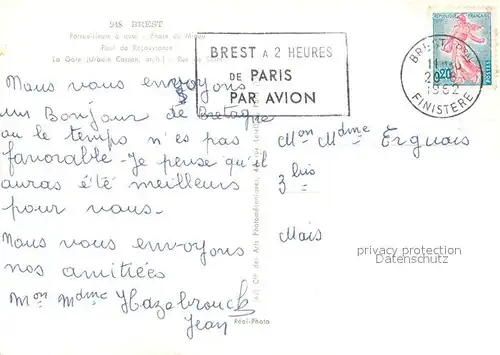 948 BREST
Porte-avions à quai - Phare du Minou
Pont de Recouvrance
La Gare (Urbain Cassan, arch.) - Rue de Siam
BREST A 2 HEURES
DE PARIS
PAR AVION
REPUBLIQUE FRANÇAISE
0,20
POSTES
BREST
1962
FINISTERE
Nous vous envoyons
un Bonjour de Bretagne
ou le temps n'es pas
favorable - Je pense qu'il
auras été meilleurs
pour vous.
Nous vous envoyons
nos amitiées
Mon Mdme Hazebrouck
Jean
Réal-Photo
Mon Mdme Erguais
3 bis
Mais
privacy protection
Datenschutz